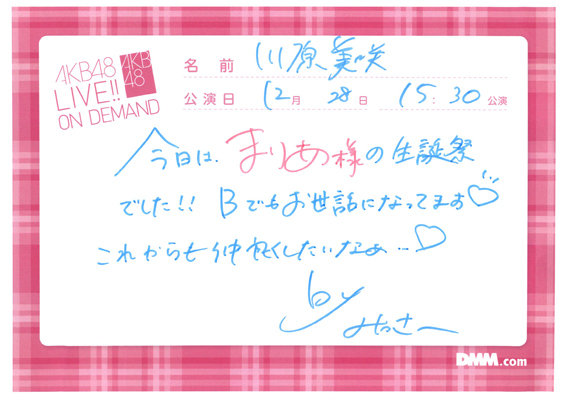 AKB48
LIVE!!
ON DEMAND
AKB
48
名前 川原美咲
公演日 12月 28日 15:30公演
今日は、まりあ様の生誕祭
でした!! Bでもお世話になってます♡
これからも仲良くしたいなぁ…♡
by
みっさー
DMM.com